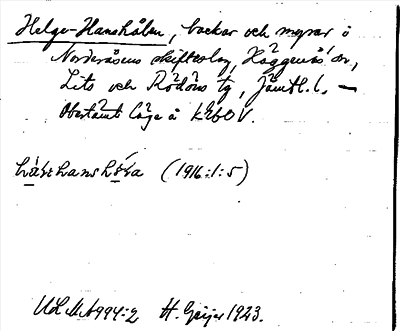 Helge-Hanshålen, backar och myrar å
Norderåsens skifteslag, Häggenås sn,
Lits och Rödöns tg, Jämtl. l. —
Obestämt läge å k. 260 V.
(1916:1:5)
ULMA 994:2 H. Geijer 1923.